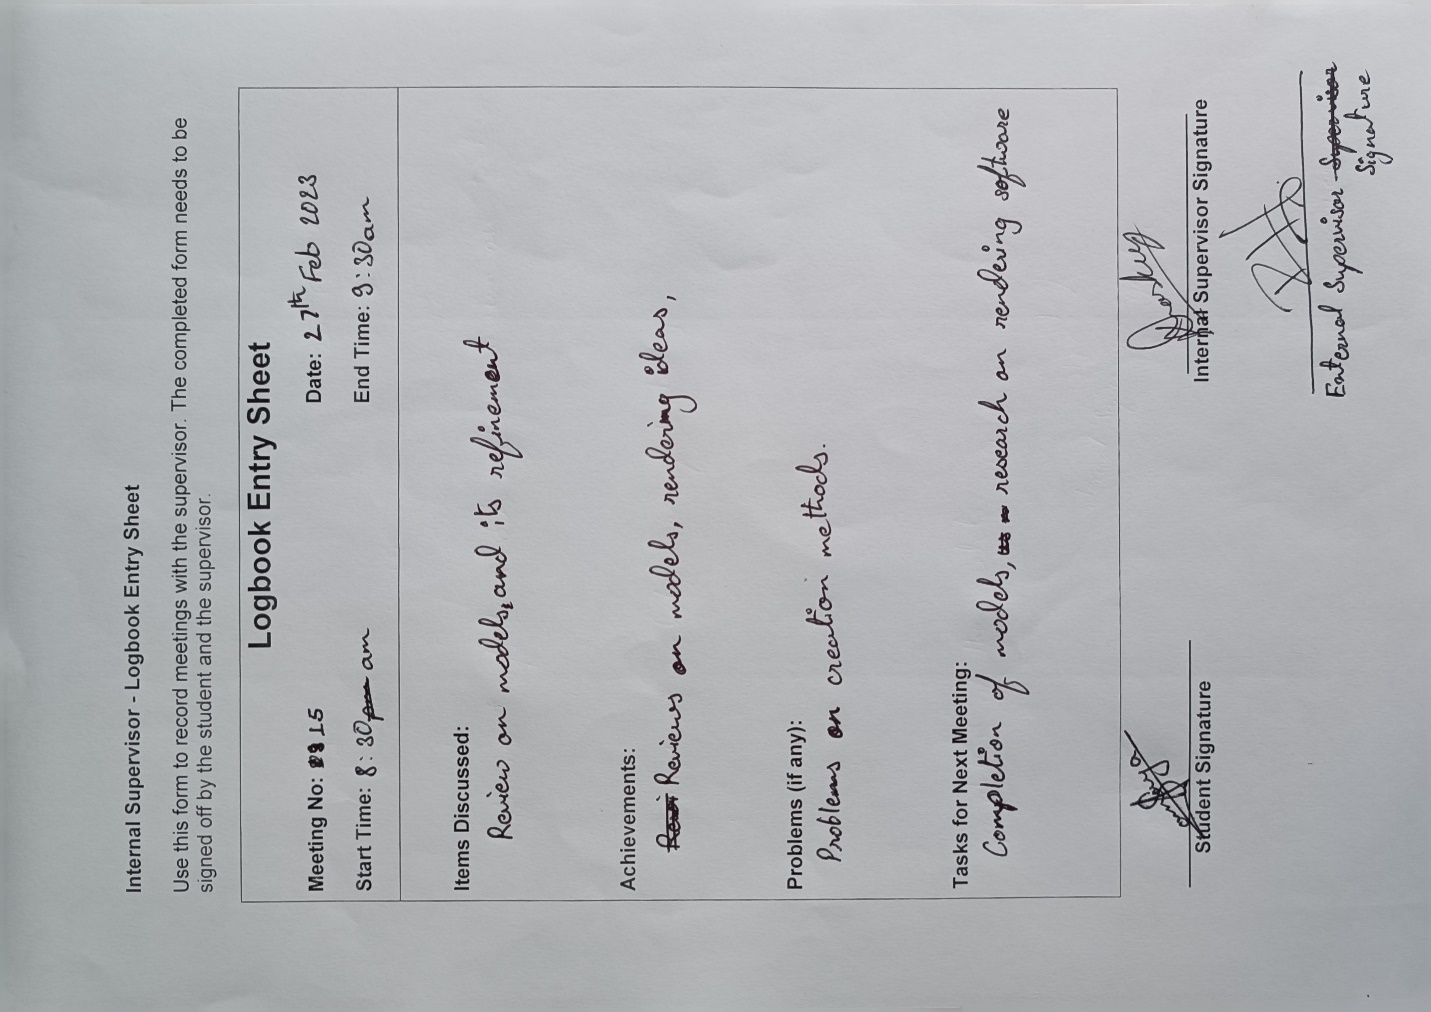 Internal Supervisor - Logbook Entry Sheet
Use this form to record meetings with the supervisor. The completed form needs to be
signed off by the student and the supervisor.
Logbook Entry Sheet
Meeting No: 15 Date: 27th Feb 2023
Start Time: 8:30 am End Time: 9:30am
Items Discussed:
Review on models, and its refinement
Achievements:
Reviews on models, rendering ideas,
Problems (if any):
Problems on creation methods.
Tasks for Next Meeting:
Completion of models, research on rendering software
Student Signature Internal Supervisor Signature
External Supervisor
Signature